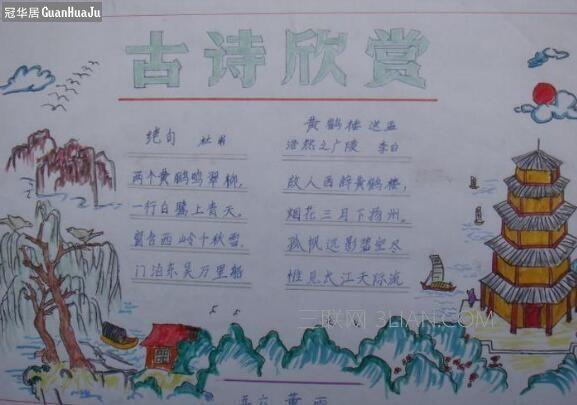 冠华居GuanHuaJu
古诗欣赏
绝句 杜甫
两个黄鹂鸣翠柳,
一行白鹭上青天。
窗含西岭千秋雪,
门泊东吴万里船
黄鹤楼送孟
浩然之广陵 李白
故人西辞黄鹤楼,
烟花三月下扬州。
孤帆远影碧空尽
惟见大江天际流
三联网 3LIAN.COM